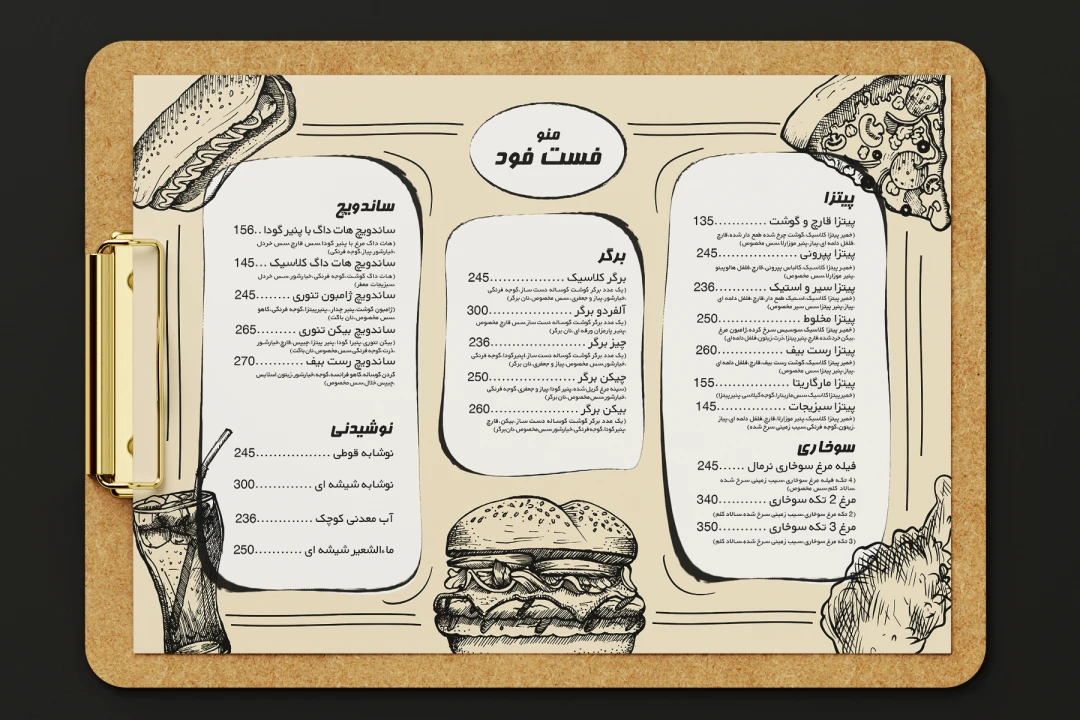 منو
فست فود
پیتزا
پیتزا قارچ و گوشت ............135
(خمیر پیتزا کلاسیک،گوشت چرخ شده طعم دار شده،قارچ
،فلفل دلمه ای،پنیر موزارلا،سس مخصوص)
پیتزا پپرونی ................245
(خمیر پیتزا کلاسیک،کالباس پپرونی،قارچ،فلفل هالوپینو
،پنیر موزارلا،سس مخصوص)
پیتزا سیر و استیک ............236
(خمیر پیتزا کلاسیک،استیک طعم دار،قارچ،فلفل دلمه ای
،پیاز،پنیر پیتزا،سس سیر مخصوص)
پیتزا مخلوط ................250
(خمیر پیتزا کلاسیک،سوسیس سرخ کرده،ژامبون مرغ
،بیکن خرد شده،قارچ،پنیر پیتزا،ذرت،زیتون،فلفل دلمه‌ای)
پیتزا رست بیف ..............260
(خمیر پیتزا کلاسیک،گوشت رست بیف،قارچ،فلفل دلمه ای
،پیاز،پنیر پیتزا،سس مخصوص)
پیتزا مارگاریتا ................155
(خمیرپیتزا کلاسیک،سس مارینارا،گوجه گیلاسی،پنیرپیتزا)
پیتزا سبزیجات ...............145
(خمیر پیتزا کلاسیک،پنیر موزارلا،قارچ،فلفل دلمه ای،پیاز
،زیتون،گوجه فرنگی،سیب زمینی سرخ شده)
سوخاری
فیله مرغ سوخاری نرمال ......245
(4 تکه فیله مرغ سوخاری،سیب زمینی سرخ شده
،سالاد کلم،سس مخصوص)
مرغ 2 تکه سوخاری ...........340
(2 تکه مرغ سوخاری،سیب زمینی سرخ شده،سالاد کلم)
مرغ 3 تکه سوخاری ...........350
(3 تکه مرغ سوخاری،سیب زمینی سرخ شده،سالاد کلم)
برگر
برگر کلاسیک ......................245
(یک عدد برگر گوشت گوساله دست ساز،گوجه فرنگی
،خیارشور،پیاز و جعفری،سس مخصوص،نان برگر)
آلفردو برگر ......................300
(یک عدد برگر گوشت گوساله دست ساز،سس قارچ مخصوص
،پنیر پارمزان ورقه ای،نان برگر)
چیز برگر ........................236
(یک عدد برگر گوشت گوساله دست ساز،پنیرگودا،گوجه فرنگی
،خیارشور،سس مخصوص،پیاز و جعفری،نان برگر)
چیکن برگر ......................250
(سینه مرغ گریل شده،پنیر گودا،پیاز و جعفری،گوجه فرنگی
،خیارشور،سس مخصوص،نان برگر)
بیکن برگر ......................260
(یک عدد برگر گوشت گوساله دست ساز،بیکن،قارچ
،پنیرگودا،گوجه فرنگی،خیارشور،سس مخصوص،نان برگر)
ساندویچ
ساندویچ هات داگ با پنیر گودا ..156
(هات داگ مرغ با پنیر گودا،سس قارچ،سس خردل
،خیارشور،پیاز،گوجه فرنگی)
ساندویچ هات داگ کلاسیک ...145
(هات داگ گوشت،گوجه فرنگی،خیارشور،سس خردل
،سبزیجات معطر)
ساندویچ ژامبون تنوری ........245
(ژامبون گوشت،پنیر چدار،،پنیرپیتزا،گوجه فرنگی،کاهو
،سس مخصوص،نان باگت)
ساندویچ بیکن تنوری .........265
(بیکن تنوری،پنیر گودا،پنیر پیتزا،چیپس،قارچ،خیارشور
،ذرت،گوجه فرنگی،سس مخصوص،نان باگت)
ساندویچ رست بیف ..........270
گردن گوساله،کاهو فرانسه،گوجه،خیارشور،زیتون اسلایس
،چیپس خلال،سس مخصوص)
نوشیدنی
نوشابه قوطی .................245
نوشابه شیشه ای ............300
آب معدنی کوچک .............236
ماءالشعیر شیشه ای ...........250